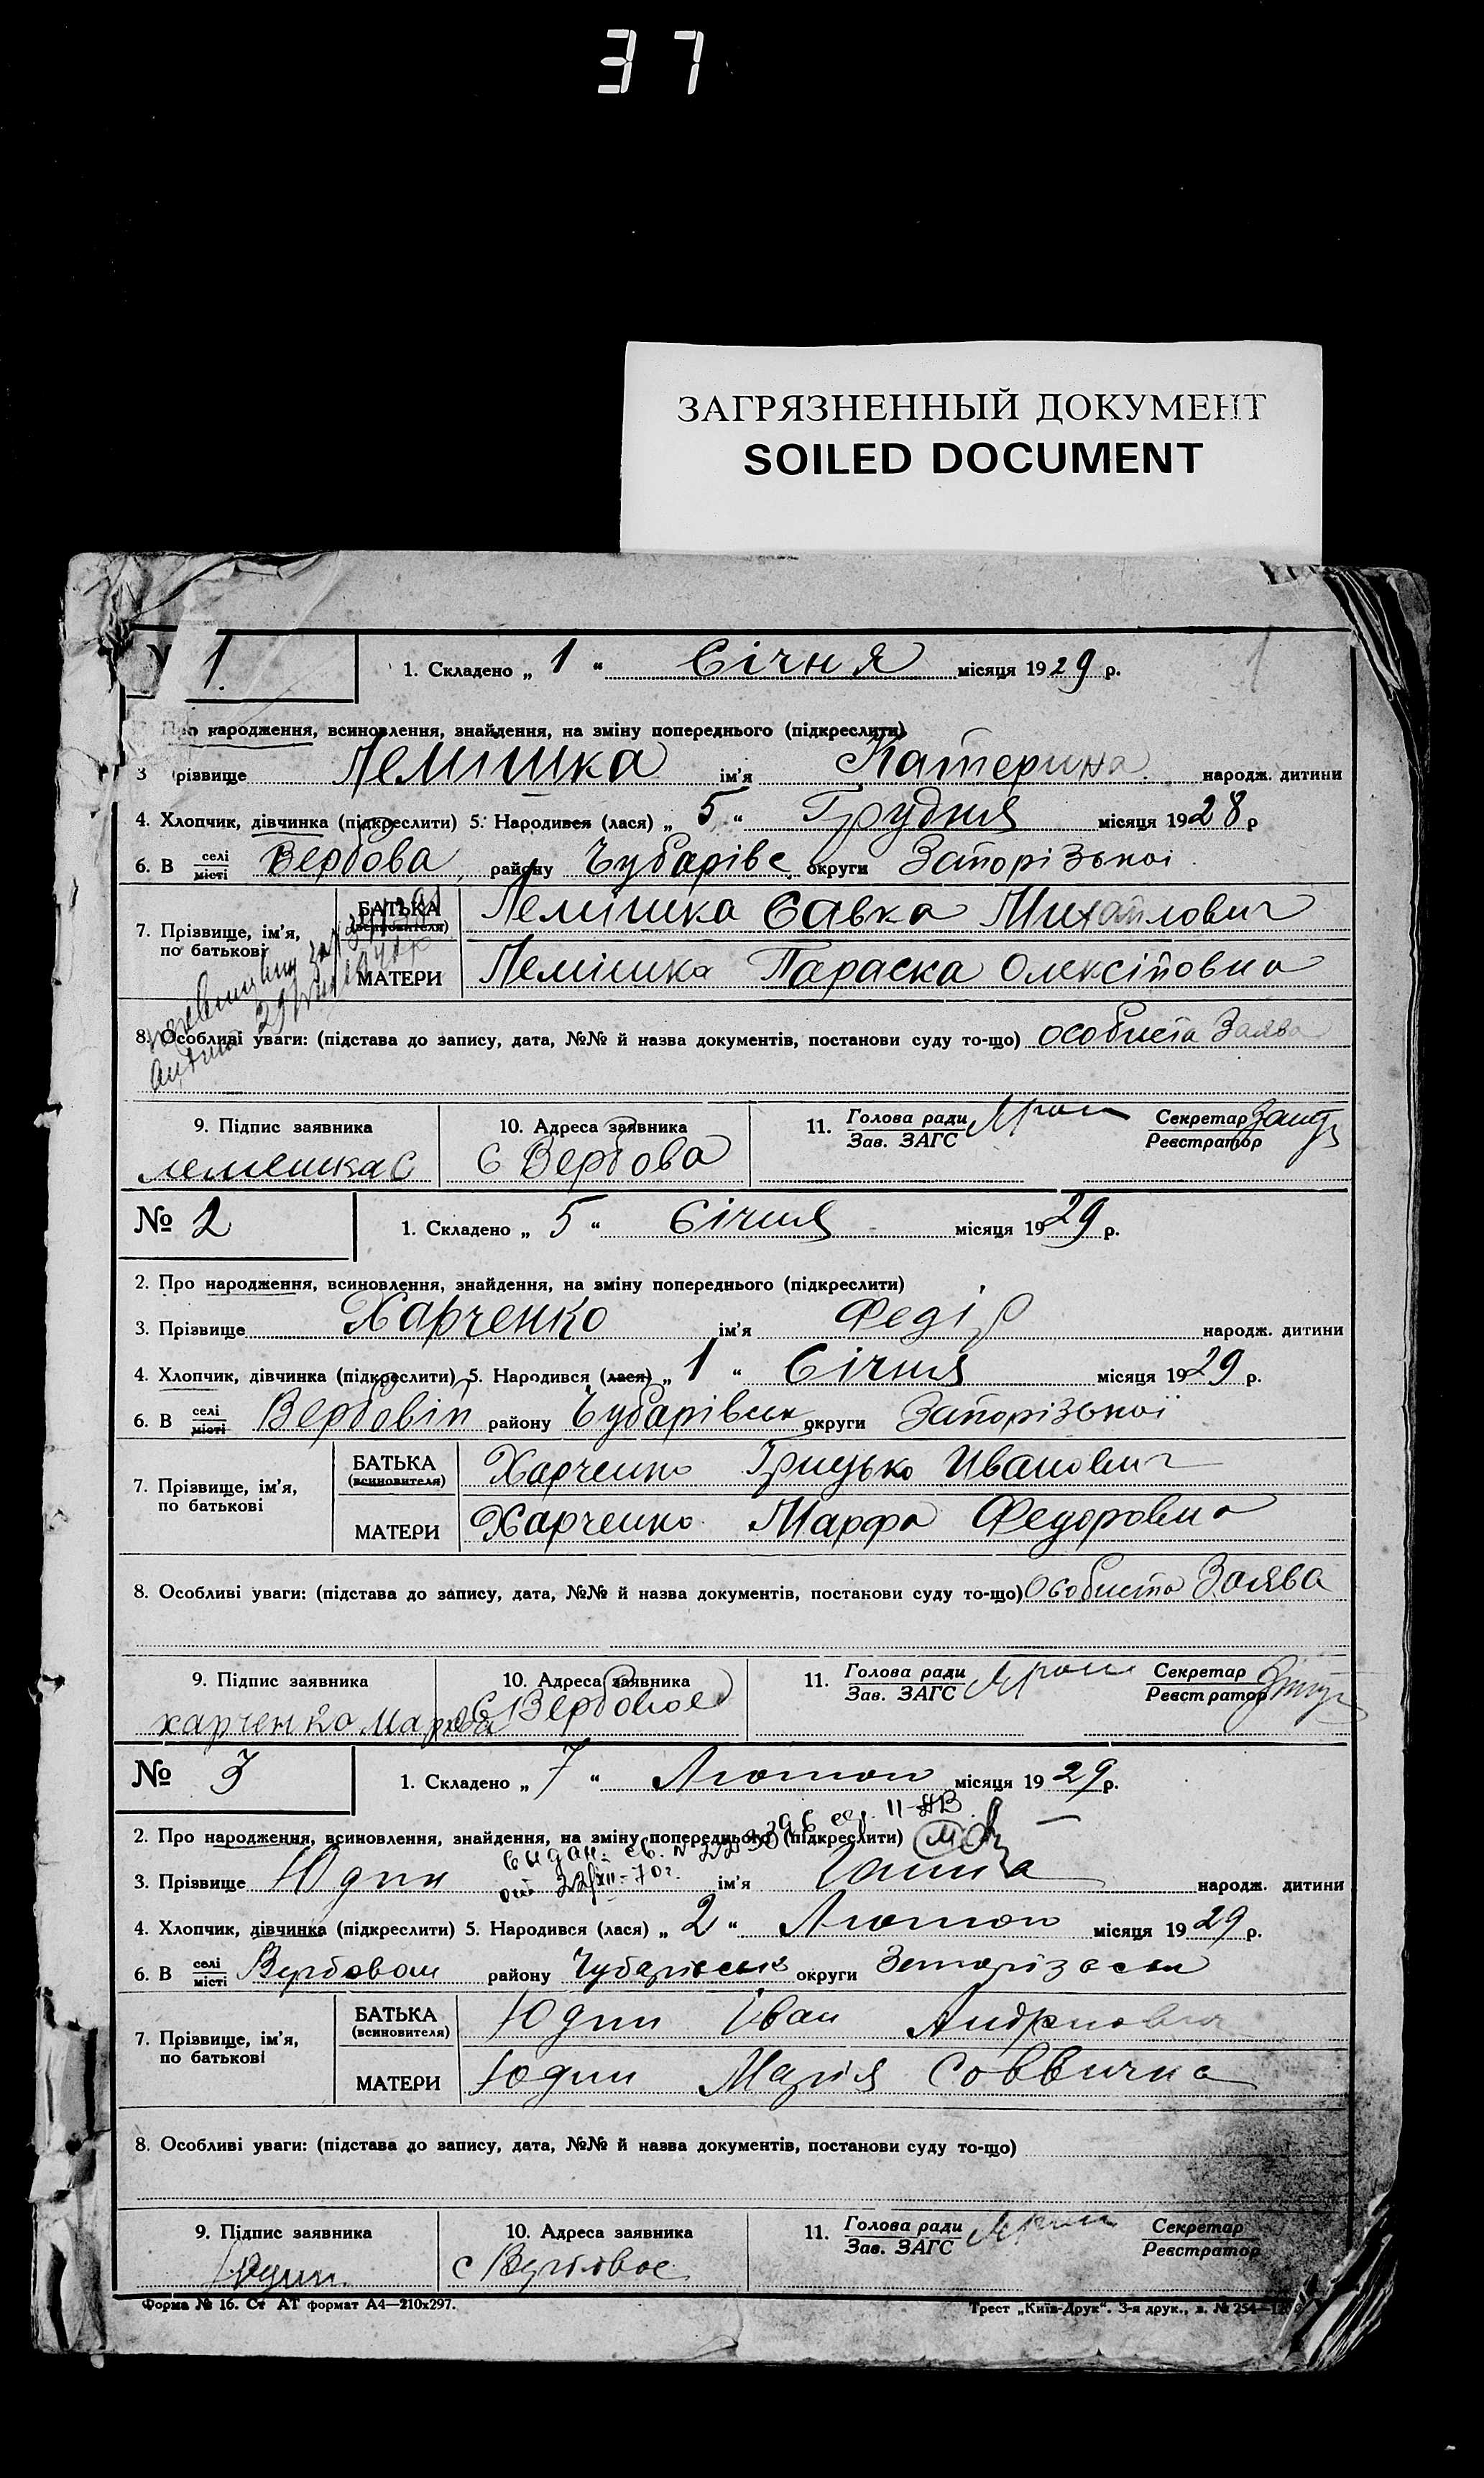 37
ЗАГРЯЗНЕННЫЙ ДОКУМЕНТ
SOILED DOCUMENT
1. 1. Складено „ 1 “ Січня місяця 1929 р.
Про народження, всиновлення, знайдення, на зміну попереднього (підкреслити)
3 різвище Лемішка ім'я Катерина народж. дитини
4. Хлопчик, дівчинка (підкреслити) 5. Народився (лася) „ 5 “ Грудня місяця 1928 р
6. В селі місті Вербова, району Чубарівс. округи Запорізькоі
7. Прізвище, ім'я, по батькові БАТЬКА (всиновителя) Лемішка Савка Михайлович
МАТЕРИ Лемішка Параска Олексіĭовна
8. Особливі уваги: (підстава до запису, дата, №№ й назва документів, постанови суду то-що) особиста Заява
9. Підпис заявника 10. Адреса заявника 11. Голова ради Зав. ЗАГС Секретар Реєстратор
лемешка С С Вербова
№ 2 1. Складено „ 5 “ Січня місяця 1929 р.
2. Про народження, всиновлення, знайдення, на зміну попереднього (підкреслити)
3. Прізвище Харченко ім'я Федір народж. дитини
4. Хлопчик, дівчинка (підкреслити) 5. Народився (лася) „ 1 “ Січня місяця 1929 р.
6. В селі місті Вербовій району Чубарівськ округи Запорізької
7. Прізвище, ім'я, по батькові БАТЬКА (всиновителя) Харченко Грицько Иванович
МАТЕРИ Харченко Марфа Федоровна
8. Особливі уваги: (підстава до запису, дата, №№ й назва документів, постанови суду то-що) Особиста Заява
9. Підпис заявника 10. Адреса заявника 11. Голова ради Зав. ЗАГС Секретар Реєстратор
харченко Марфа С Вербовое
№ 3 1. Складено „ 7 “ Лютого місяця 1929 р.
2. Про народження, всиновлення, знайдення, на зміну попереднього (підкреслити)
от 22/XII-70г.
3. Прізвище Юдин ім'я Ганна народж. дитини
4. Хлопчик, дівчинка (підкреслити) 5. Народився (лася) „ 2 “ Лютого місяця 1929 р.
6. В селі місті Вербовом району Чубарівськ округи
7. Прізвище, ім'я, по батькові БАТЬКА (всиновителя) Юдин Іван Андрнович
МАТЕРИ Юдин Марія Соввична
8. Особливі уваги: (підстава до запису, дата, №№ й назва документів, постанови суду то-що)
9. Підпис заявника 10. Адреса заявника 11. Голова ради Зав. ЗАГС Секретар Реєстратор
Юдин с Вербовое
Форма № 16. Ст АТ формат А4—210х297. Трест „Київ-Друк“. 3-я друк., з. № 254